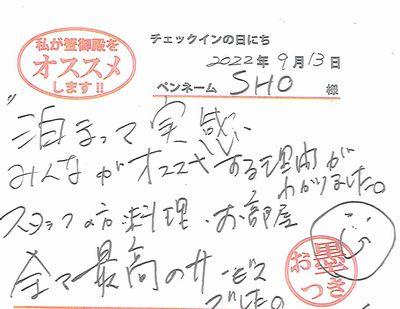 私が蟹御殿を
オススメ
します!!
チェックインの日にち
2022年9月13日
ペンネーム SHO 様
"泊まって実感、
みんながオススメする理由が
わかりました。
スタッフの方・料理・お部屋
全て最高のサービス
でした。
お墨つき